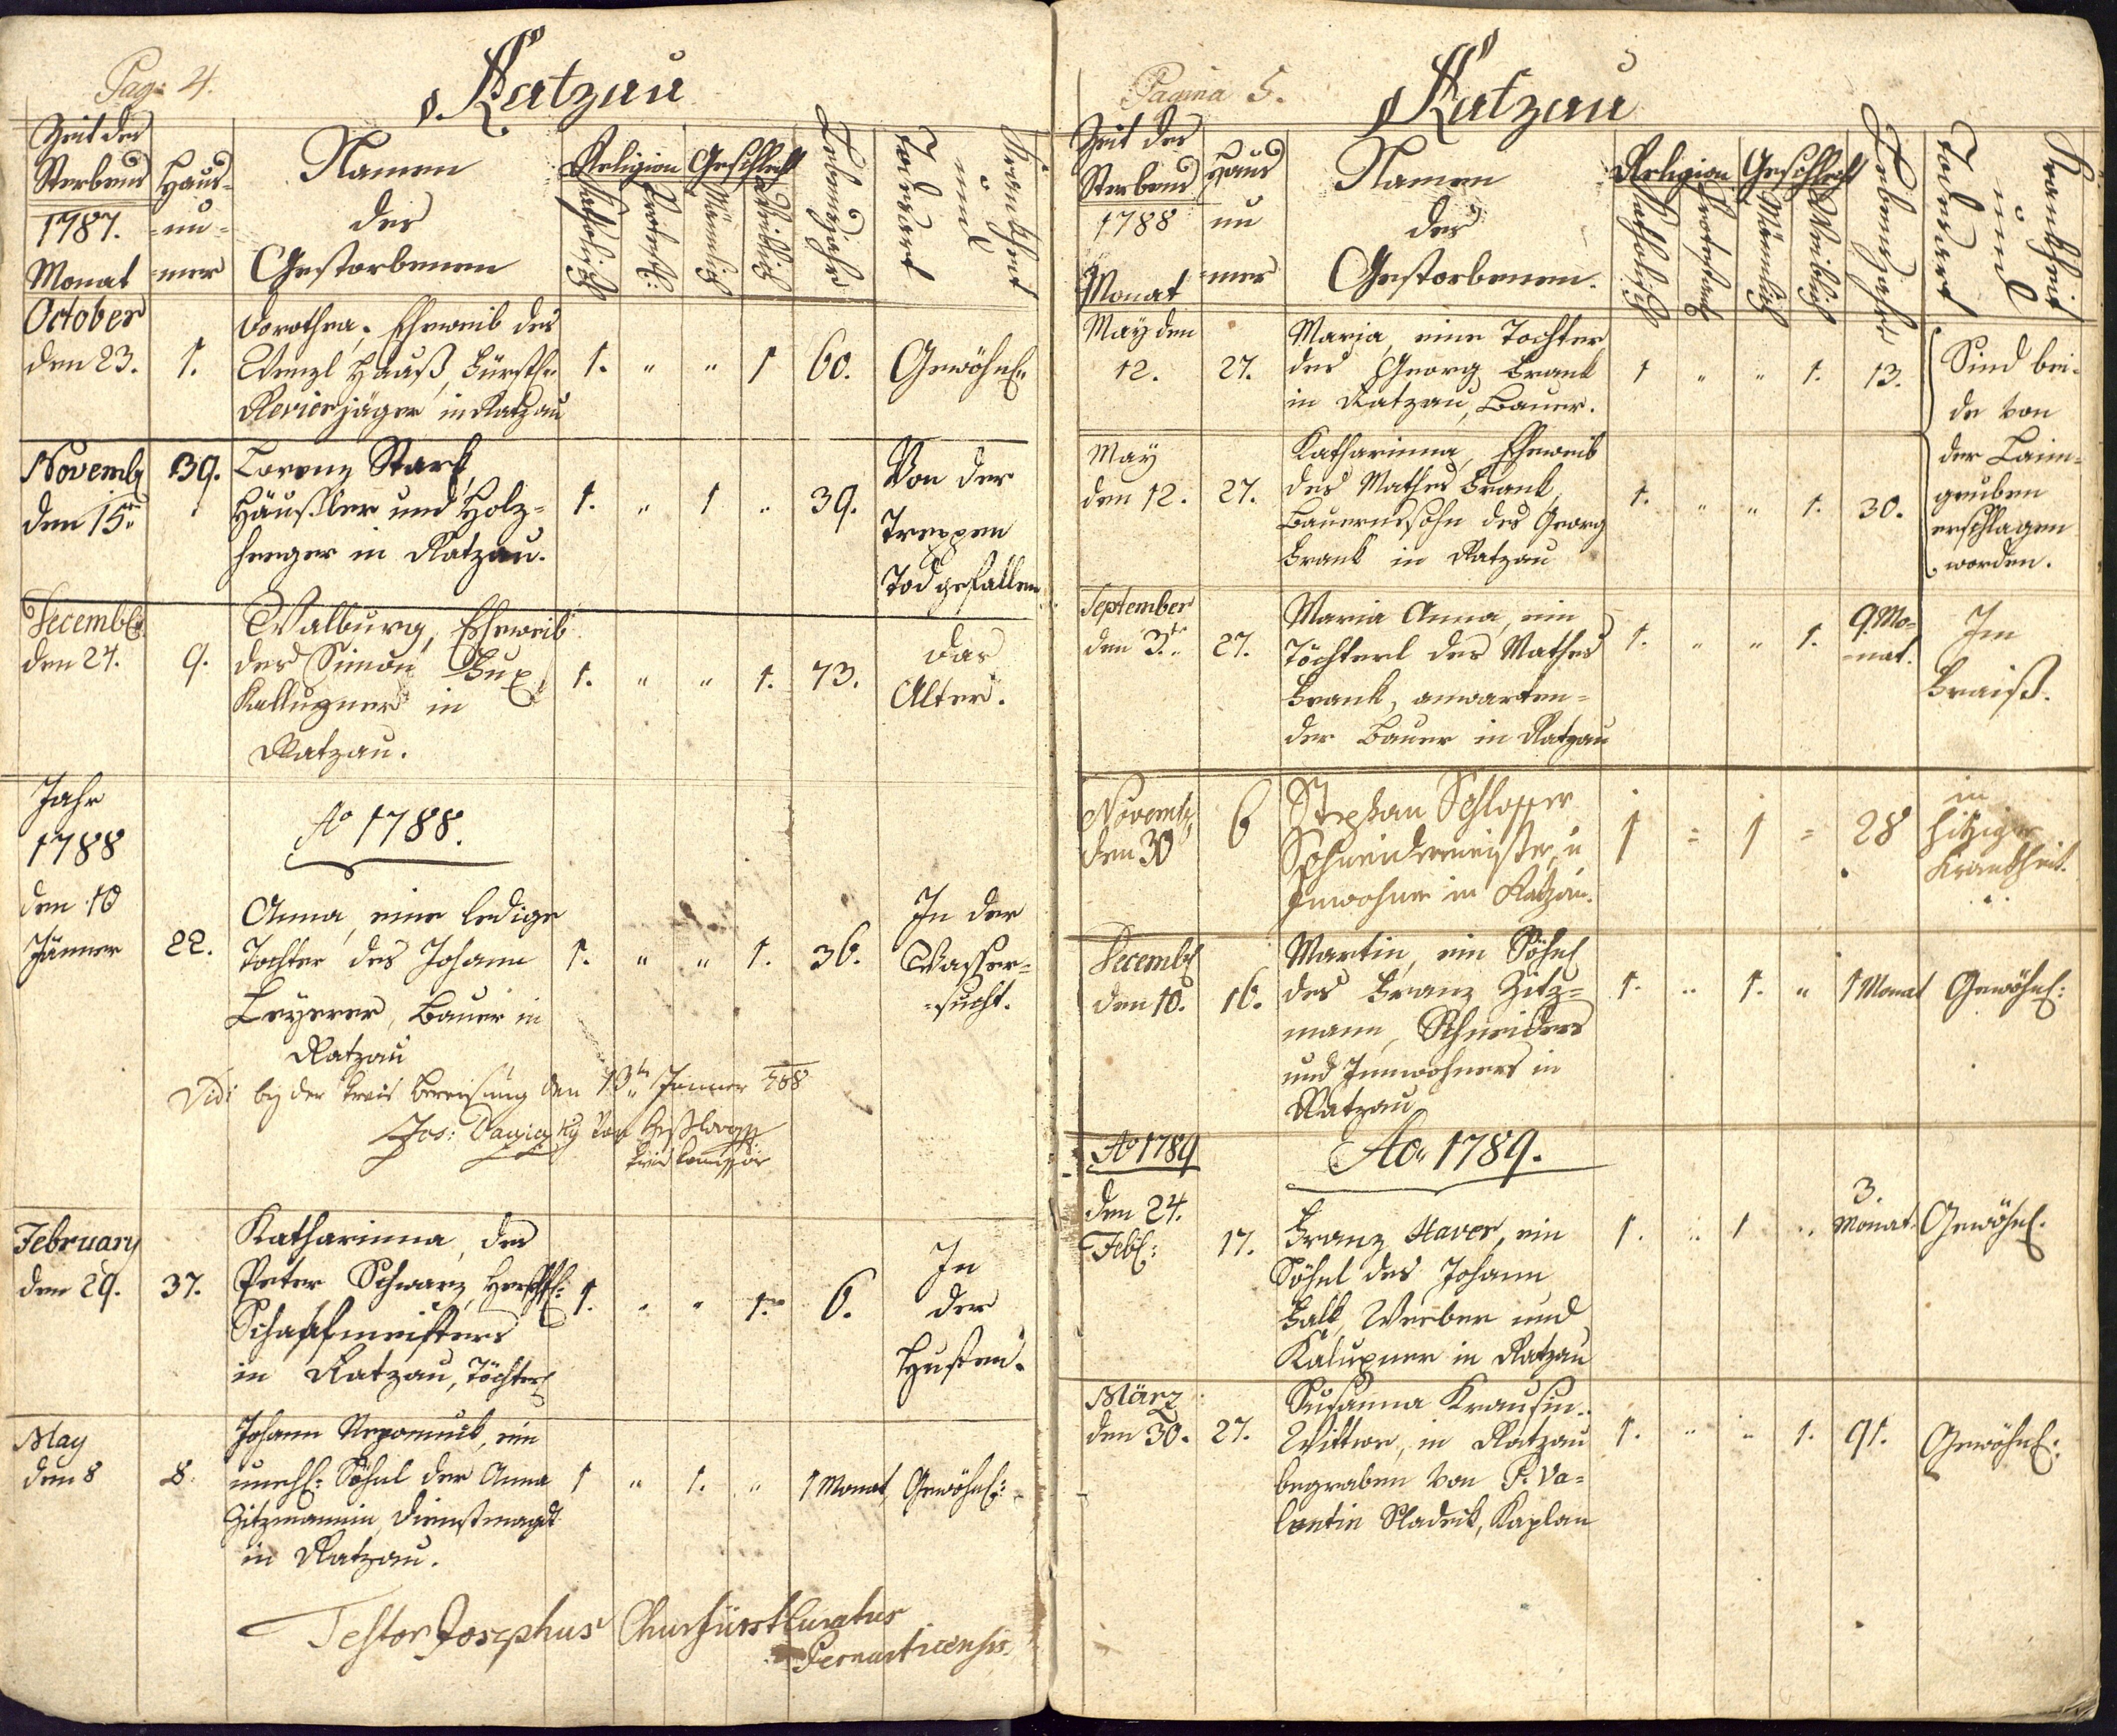 Pag: 4.
Ratzau
Zeit des
Sterbens
1787.
Monat
Haus-
-nu-
mer
Namen
der
Gestorbenen
Religion
Katholisch
Protest:
Geschlecht
Männlich
Weiblich
Lebensjahre
Krankheit
und
Todesart
October
den 23.
1.
Dorothea, Eheweib des
Wenzl Hauß, Fürstl:
Revierjäger in Ratzau
1. " " 1 60. Gewöhnl:
Novemb
den 15n
39.
Lorenz Stark,
Häußler und Holz-
heeger in Ratzau.
1. " 1 " 39.
Von der
Treppen
Tod gefallen
Decemb
den 24.
9.
Walburg, Eheweib
des Simon Bux
Kallupner in
Ratzau.
1. " " 1. 73.
Das
Alter.
Jahr
1788
Ao 1788.
den 10
Jänner
22.
Anna, eine ledige
Tochter des Johann
Beyerer, Bauer in
Ratzau
1. " " 1. 36.
In der
Wasser-
-sucht.
Vidi bey der Kreis Bereisung den 13tn Jänner 788
Jos:
Februari
den 29.
37.
Katharinna, des
Peter Schwarz, Herschftl:
Schaafmeisters
in Ratzau, Töchterl
1. " " 1. 6.
In
der
Husten.
May
den 8
8.
Johann Nepomuck, ein
unehl: Söhnl der Anna
Zitzmannin Dienstmagd
in Ratzau.
1 " 1. " 1 Monat Gewöhnl:
Testor Josephus Churfürst Curatus
Pernarticensis.
Pagina 5.
Ratzau
Zeit des
Sterbens
1788
Monat
Haus
nu
mer
Namen
der
Gestorbenen.
Religion
Katholisch
Protestant
Geschlecht
Männlich
Weiblich
Lebensjahre
Krankheit
und
Todesart
May den
12.
27.
Maria, eine Tochter
des Georg Frank
in Ratzau, Bauer.
1 " " 1. 13.
Sind bei-
de von
der Laim-
gruben
erschlagen
worden.
May
den 12.
27.
Katharinna, Eheweib
des Mathes Frank,
Bauerssohn des Georg
Frank in Ratzau
1. " " 1. 30.
September
den 3.tn
27.
Maria Anna, ein
Töchterl des Mathes
Frank, anwarten-
der Bauer in Ratzau
1. " " 1.
9. Mo-
-nat.
Im
Fraiß.
Novemb
den 30
6
Stephan Schlosser
Schneidermeister, u
Inwohner in Ratzau.
1 = 1 = 28
in
hitziger
Krankheit.
Decemb
den 10.
16.
Martin, ein Söhnl
des Franz Zitz-
mann, Schneiders
und Innwohners in
Ratzau
1. " 1. " 1 Monat Gewöhnl:
Ao 1789
Ao 1789.
den 24.
Feb:
17.
Franz Xaver, ein
Söhnl des Johann
Balk, Weeber und
Kalupner in Ratzau
1. " 1 "
3.
Monat Gewöhnl.
März
den 30.
27.
Susanna Krausin
Wittwe, in Ratzau
begraben von P. Va-
lentin Sladeck, Kaplan
1. " " 1. 91. Gewöhnl: